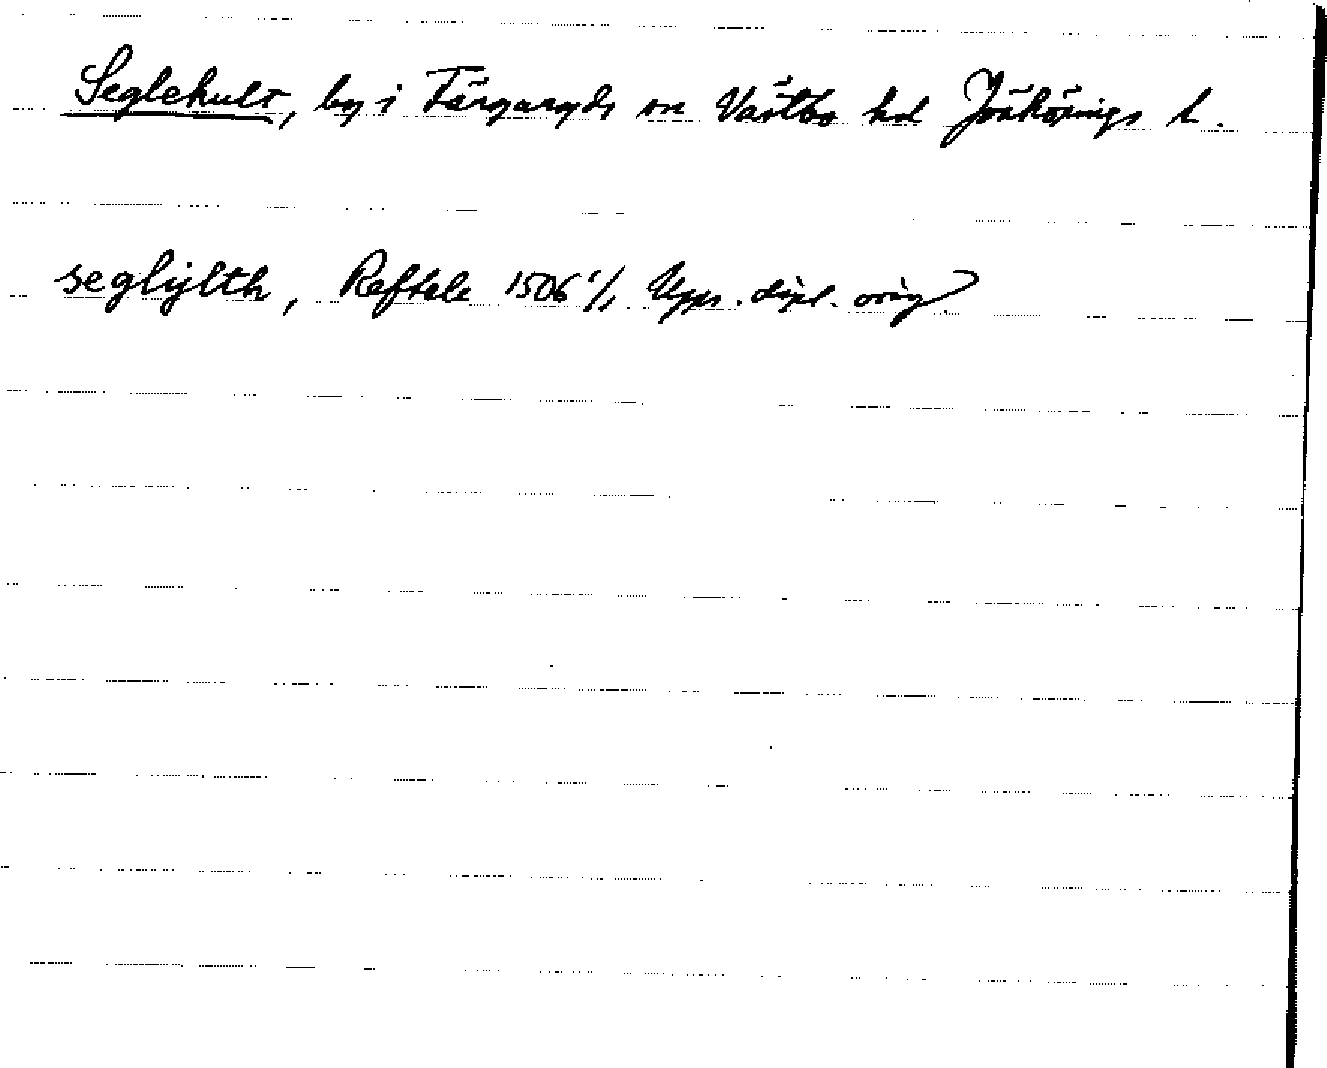 Seglehult, by i Färgaryds sn Västbo hd Jönköpings l.
seglijlth, Reftele 1506 Upps. dipl. orig.